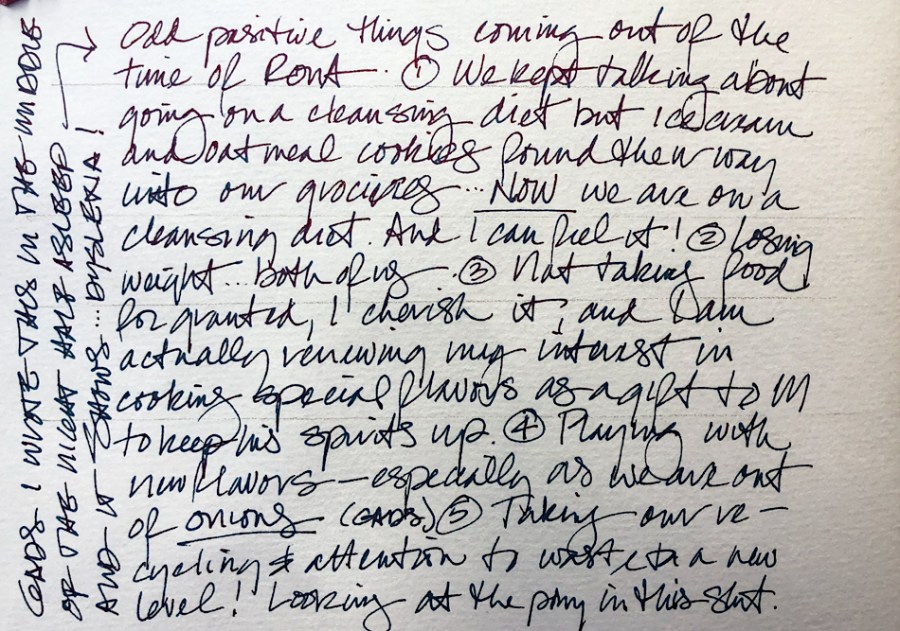 Odd positive things coming out of the
time of RONA. ① We kept talking about
going on a cleanssing diet but ice cream
and oatmeal cookies found their way
into our grociries... Now we are on a
cleanssing diet. And I can feel it! ② Losing
weight... both of us. ③ Not taking food
for granted, I cherish it, and I am
actually renewing my interest in
cooking special flavors as a gift to M
to keep his spirits up. ④ Playing with
new flavors – especially as we are out
of onions (GADS) ⑤ Taking our re-
cycling & attention to waste to a new
level! Looking at the pony in this shit.
GADS I WROTE THIS IN THE MIDDLE
OF THE NIGHT HALF ASLEEP
AND IT SHOWS... DYSLEXIA!